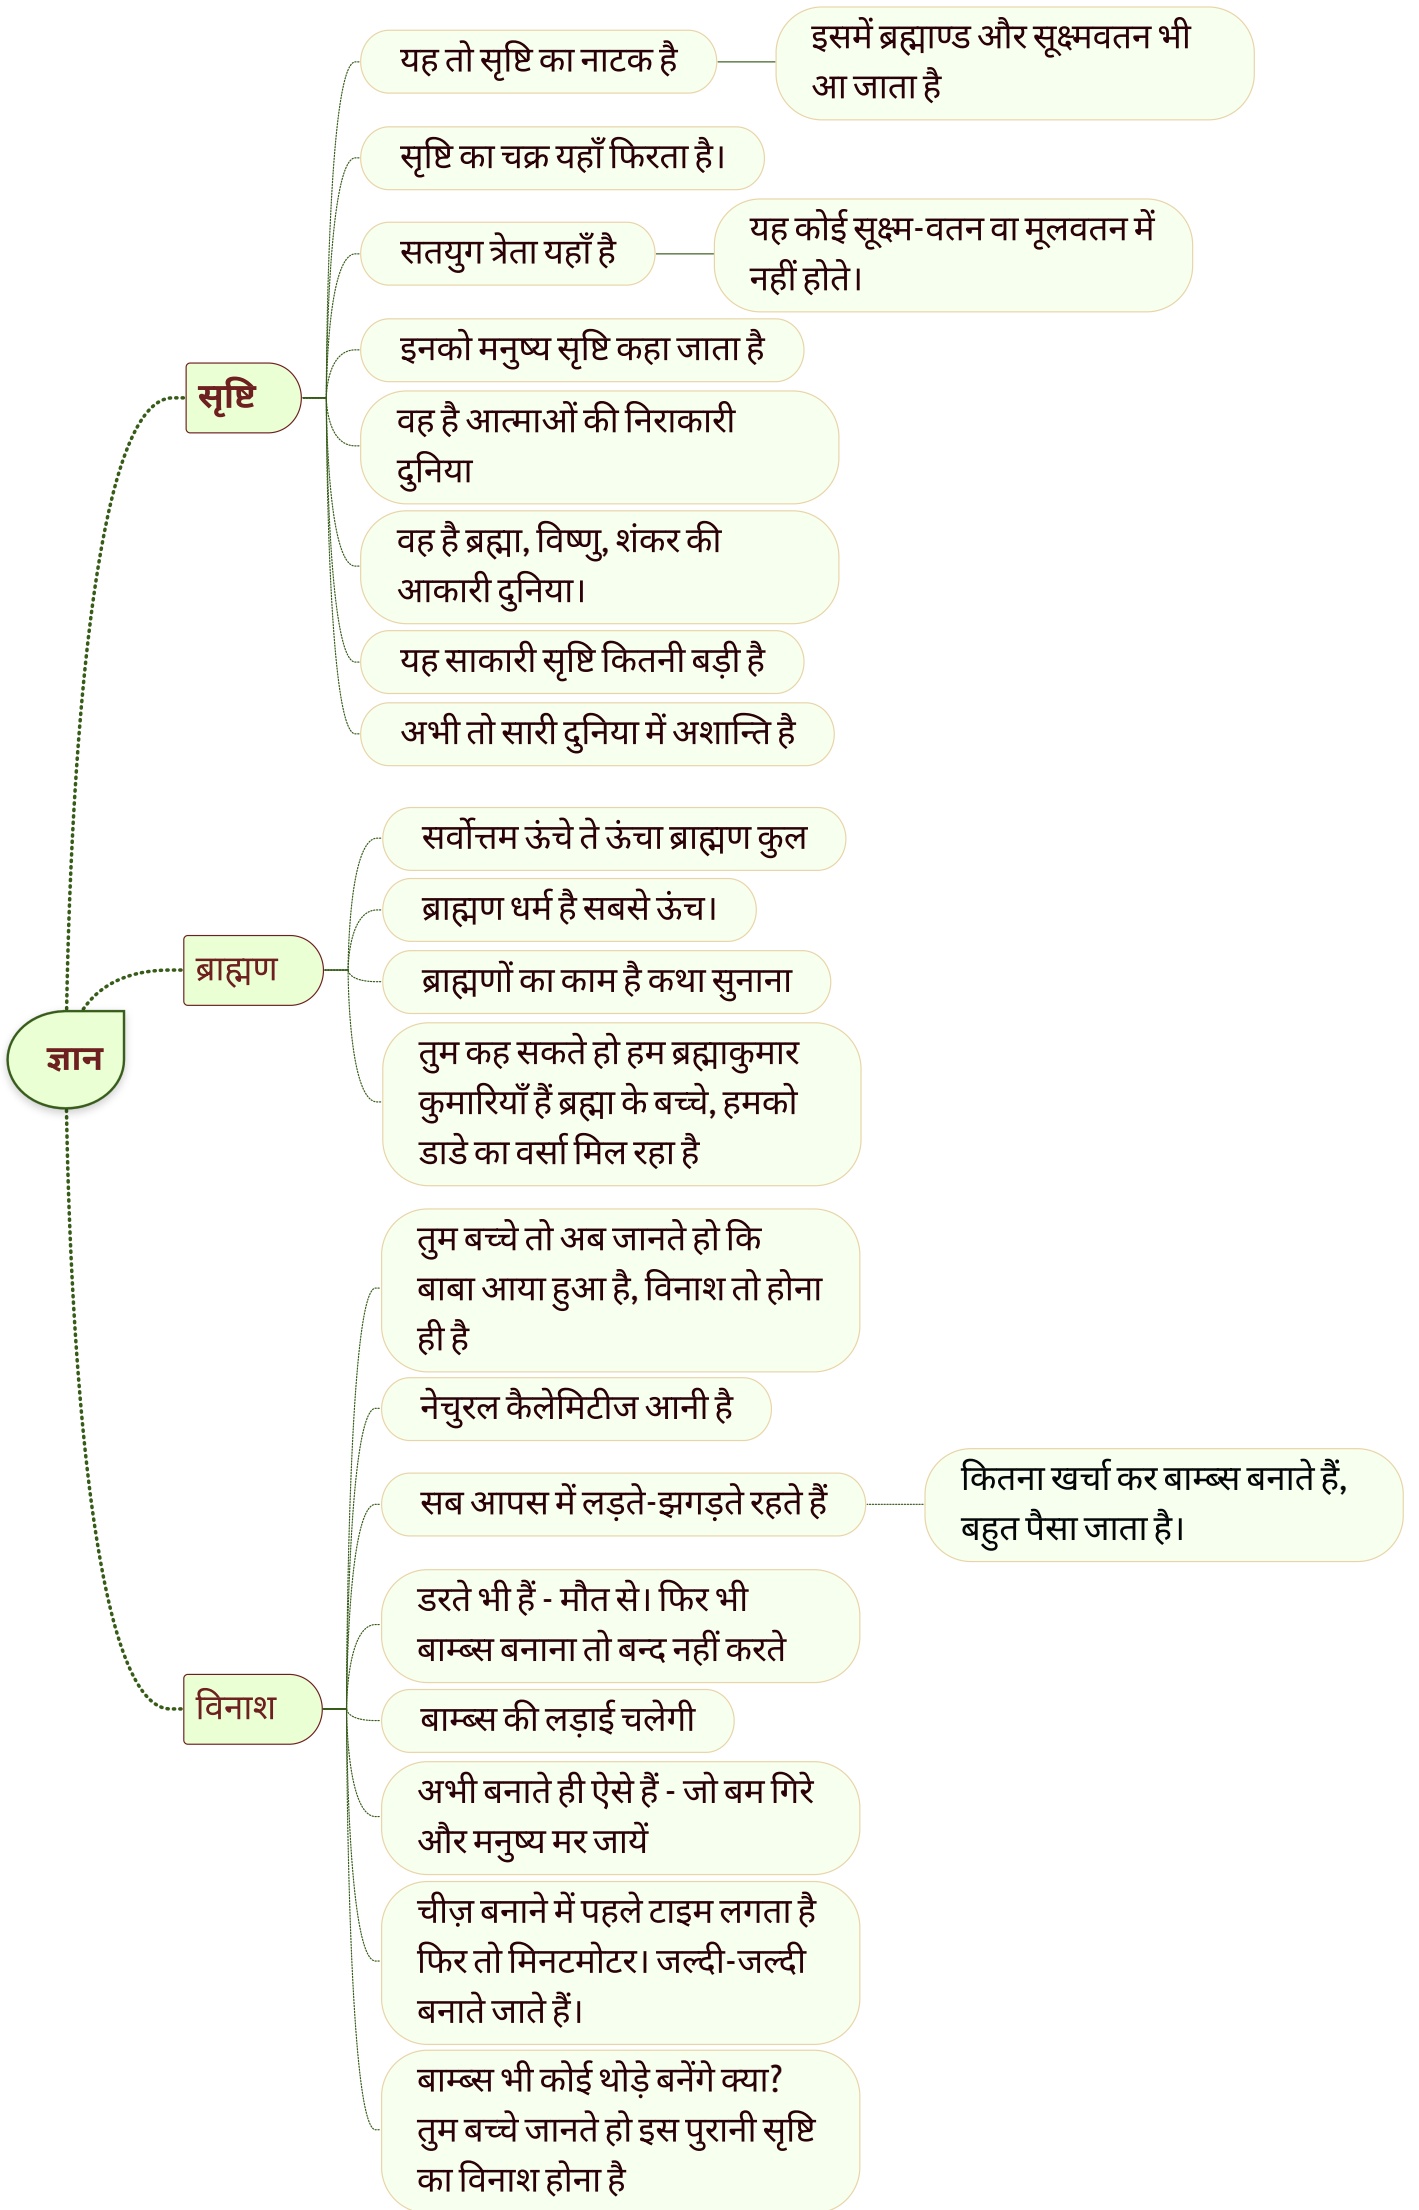 ज्ञान
सृष्टि
यह तो सृष्टि का नाटक है
इसमें ब्रह्माण्ड और सूक्ष्मवतन भी
आ जाता है
सृष्टि का चक्र यहाँ फिरता है।
सतयुग त्रेता यहाँ है
यह कोई सूक्ष्म-वतन वा मूलवतन में
नहीं होते।
इनको मनुष्य सृष्टि कहा जाता है
वह है आत्माओं की निराकारी
दुनिया
वह है ब्रह्मा, विष्णु, शंकर की
आकारी दुनिया।
यह साकारी सृष्टि कितनी बड़ी है
अभी तो सारी दुनिया में अशान्ति है
ब्राह्मण
सर्वोत्तम ऊंचे ते ऊंचा ब्राह्मण कुल
ब्राह्मण धर्म है सबसे ऊंच।
ब्राह्मणों का काम है कथा सुनाना
तुम कह सकते हो हम ब्रह्माकुमार
कुमारियाँ हैं ब्रह्मा के बच्चे, हमको
डाडे का वर्सा मिल रहा है
विनाश
तुम बच्चे तो अब जानते हो कि
बाबा आया हुआ है, विनाश तो होना
ही है
नेचुरल कैलेमिटीज आनी है
सब आपस में लड़ते-झगड़ते रहते हैं
कितना खर्चा कर बाम्ब्स बनाते हैं,
बहुत पैसा जाता है।
डरते भी हैं - मौत से। फिर भी
बाम्ब्स बनाना तो बन्द नहीं करते
बाम्ब्स की लड़ाई चलेगी
अभी बनाते ही ऐसे हैं - जो बम गिरे
और मनुष्य मर जायें
चीज़ बनाने में पहले टाइम लगता है
फिर तो मिनटमोटर। जल्दी-जल्दी
बनाते जाते हैं।
बाम्ब्स भी कोई थोड़े बनेंगे क्या?
तुम बच्चे जानते हो इस पुरानी सृष्टि
का विनाश होना है